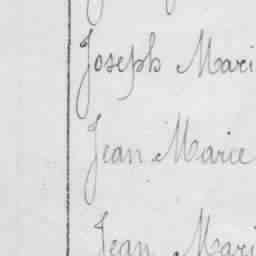 Joseph Mari
Jean Marie
Jean Mari